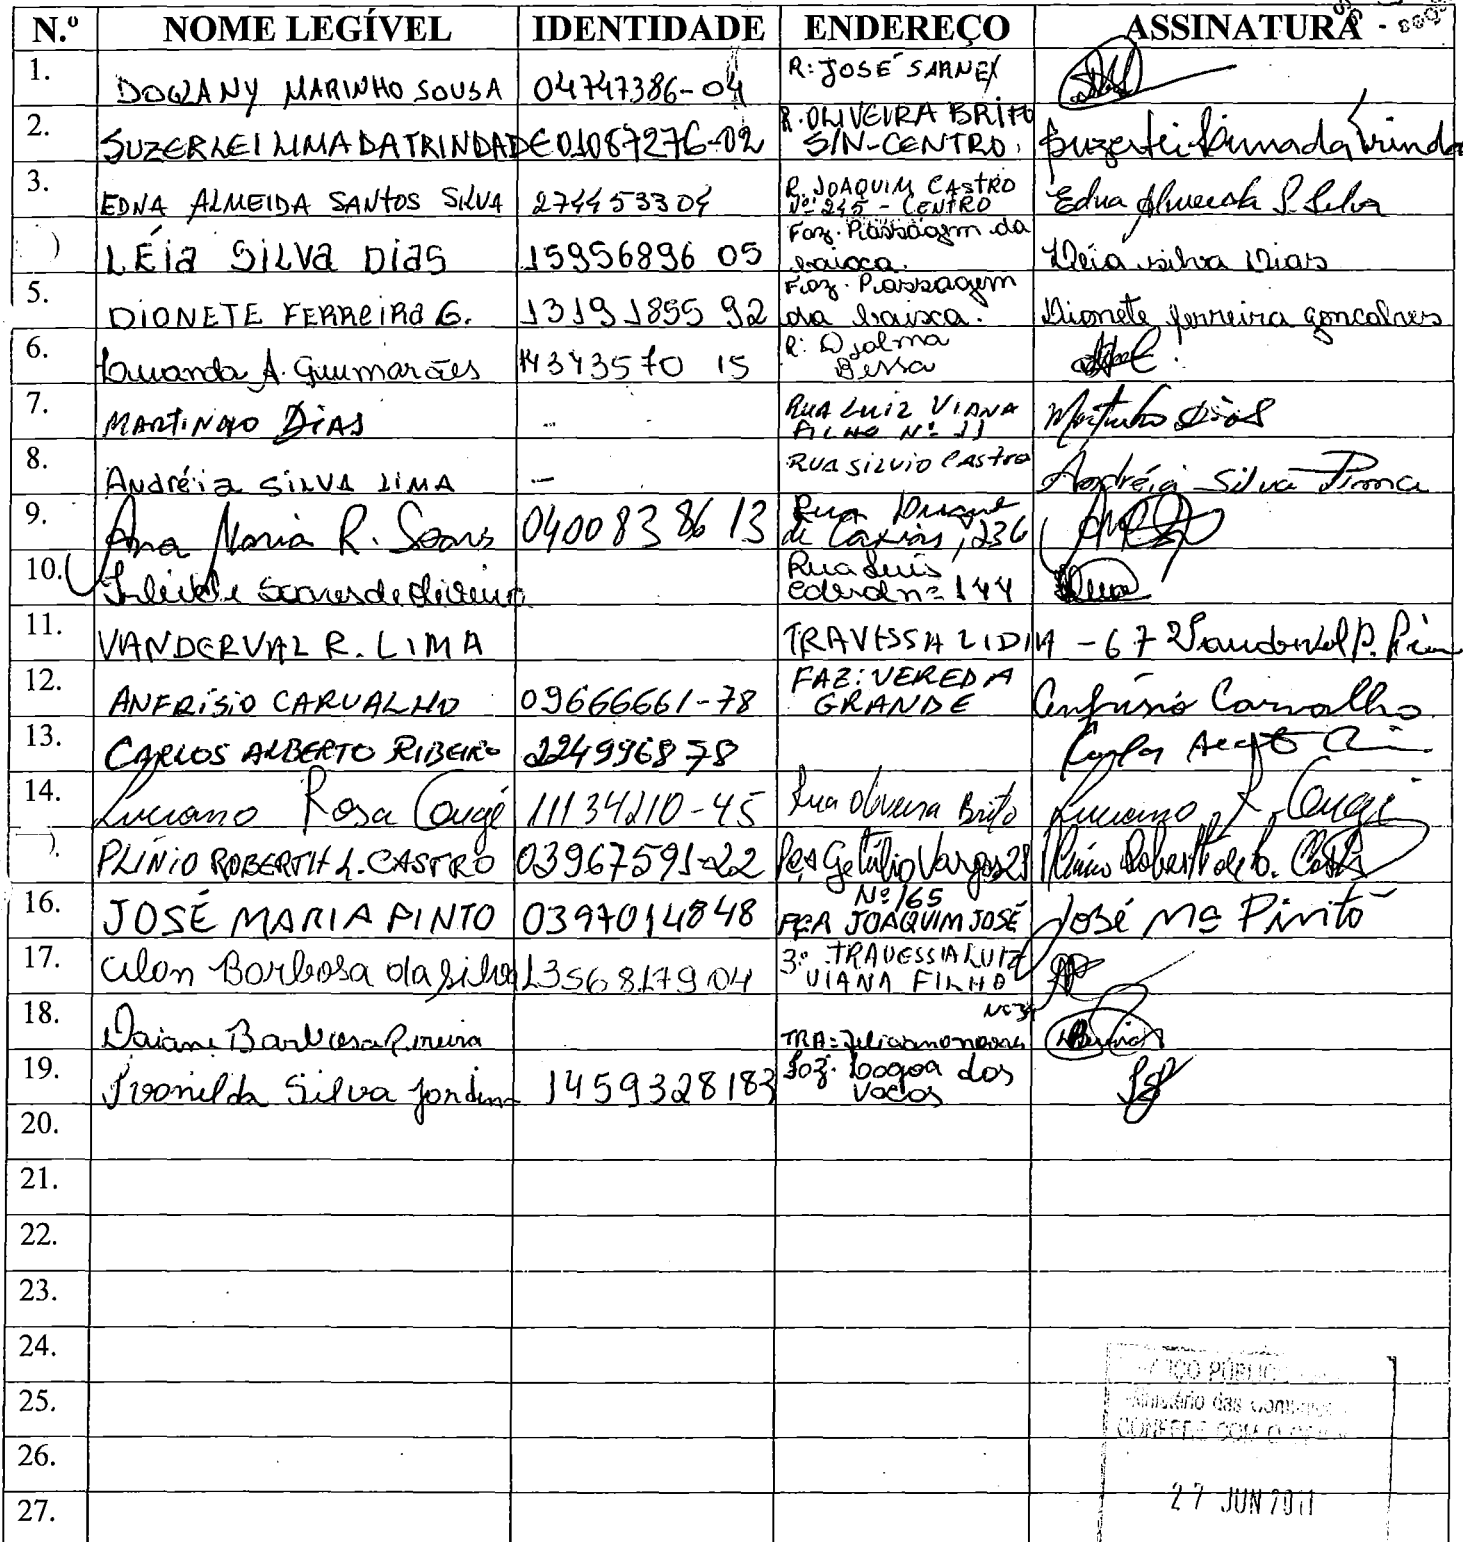 N.º NOME LEGÍVEL IDENTIDADE ENDEREÇO ASSINATURA
1. MARINHO SOUSA 04747386-04 R: JOSÉ SARNEY
2. SUZERLEI LIMA DA TRINDADE 01087276-02 R. OLIVEIRA BRITO
S/N-CENTRO. Suzerlei Lima da Trinda
3. EDNA ALMEIDA SANTOS SILVA 274453304 R. JOAQUIM CASTRO
Nº 245 - CENTRO Edna Almeida S. Silva
) LÉIA SILVA DIAS 15956896 05 Faz. Passagem da
Léia silva Dias
5. DIONETE FERREIRA G. 13191855 92 Faz. Passagem
da Dionete ferreira goncalves
6. A. Guimarães 14343570 15 R: Djalma
Bessa
7. MARTINHO DIAS - RUA LUIZ VIANA
FILHO Nº 11 Martinho Dias
8. Andréia SILVA LIMA - RUA SILVIO CASTRO Andréia Silva Lima
9. Ana Maria R. Soares 0400838613 Rua Duque
de Caxias, 236
10. Soares de Oliveira Rua Luis
nº 144
11. VANDERVAL R. LIMA TRAVESSA LIDIA - 67 Vanderval R. Lima
12. ANFRÍSIO CARVALHO 09666661-78 FAZ: VEREDA
GRANDE Anfrísio Carvalho
13. CARLOS ALBERTO RIBEIRO 2249968 78
14. Luciano Rosa 11134210-45 Rua Oliveira Brito Luciano R.
). PLÍNIO ROBERTH L. CASTRO 03967591-22 Pça Getúlio Vargas 23 Plínio
16. JOSÉ MARIA PINTO 0397014848 Nº 165
PÇA JOAQUIM JOSÉ José Mª Pinto
17. Barbosa da Silva 1356817904 3ª TRAVESSIA LUIZ
VIANA FILHO
18. Daiane Barbosa Pereira
TRA:
19. Ivonilda Silva Jardim 1459328183 Faz. Lagoa dos
Vacas
20.
21.
22.
23.
24.
PÚBLICO
25. Ministério das
CONFERE COM O
26.
27. 27 JUN 2011